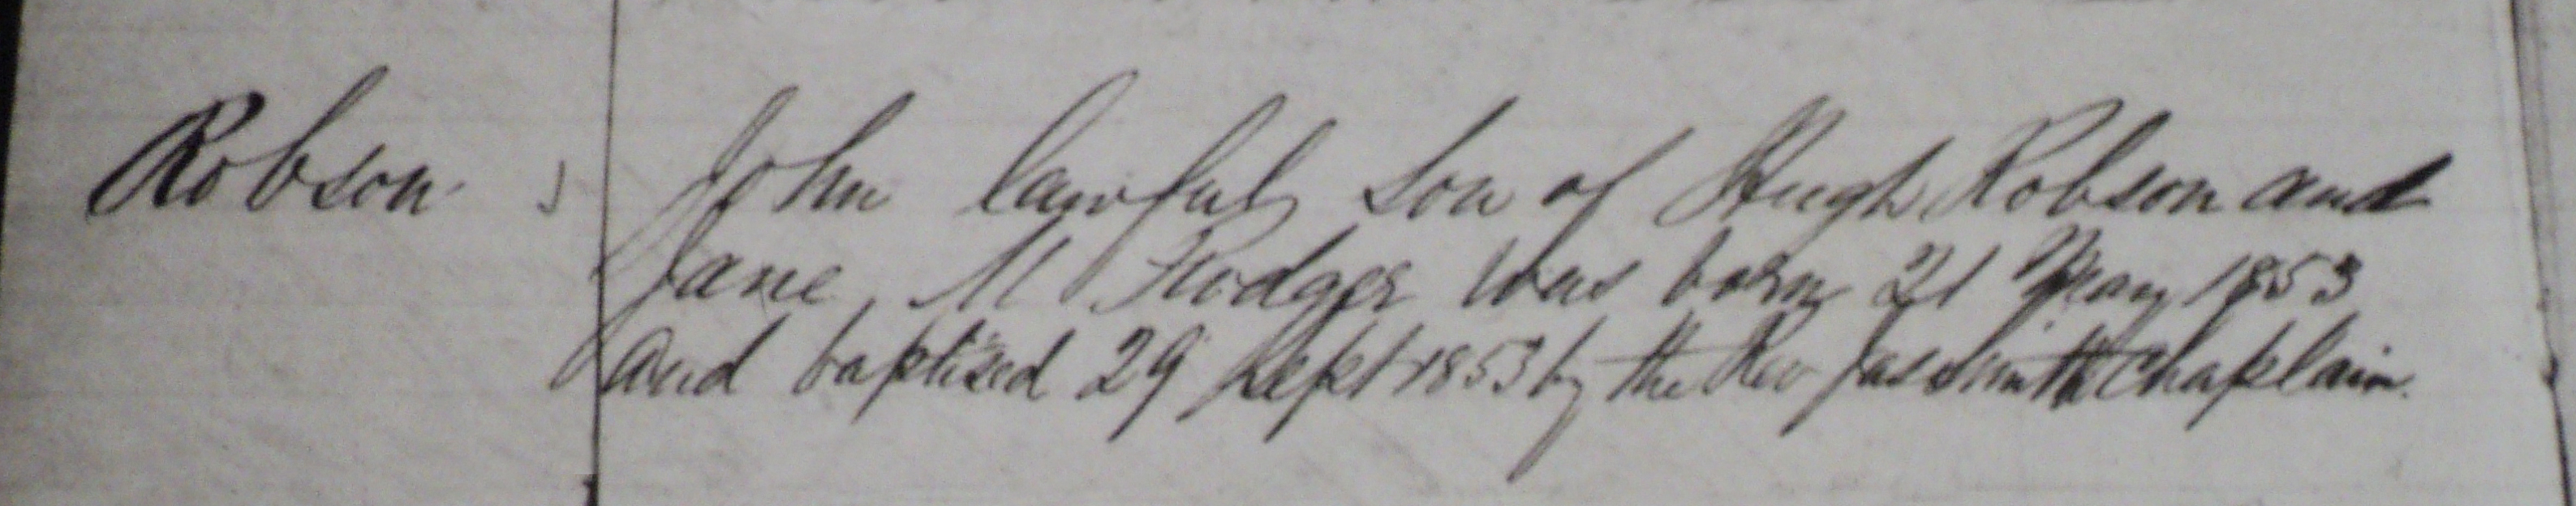 Robson John lawful son of Hugh Robson and
Jane M Rodger was born 21 May 1853
and baptised 29 Sept 1853 by the Rev Jas Smith Chaplain.